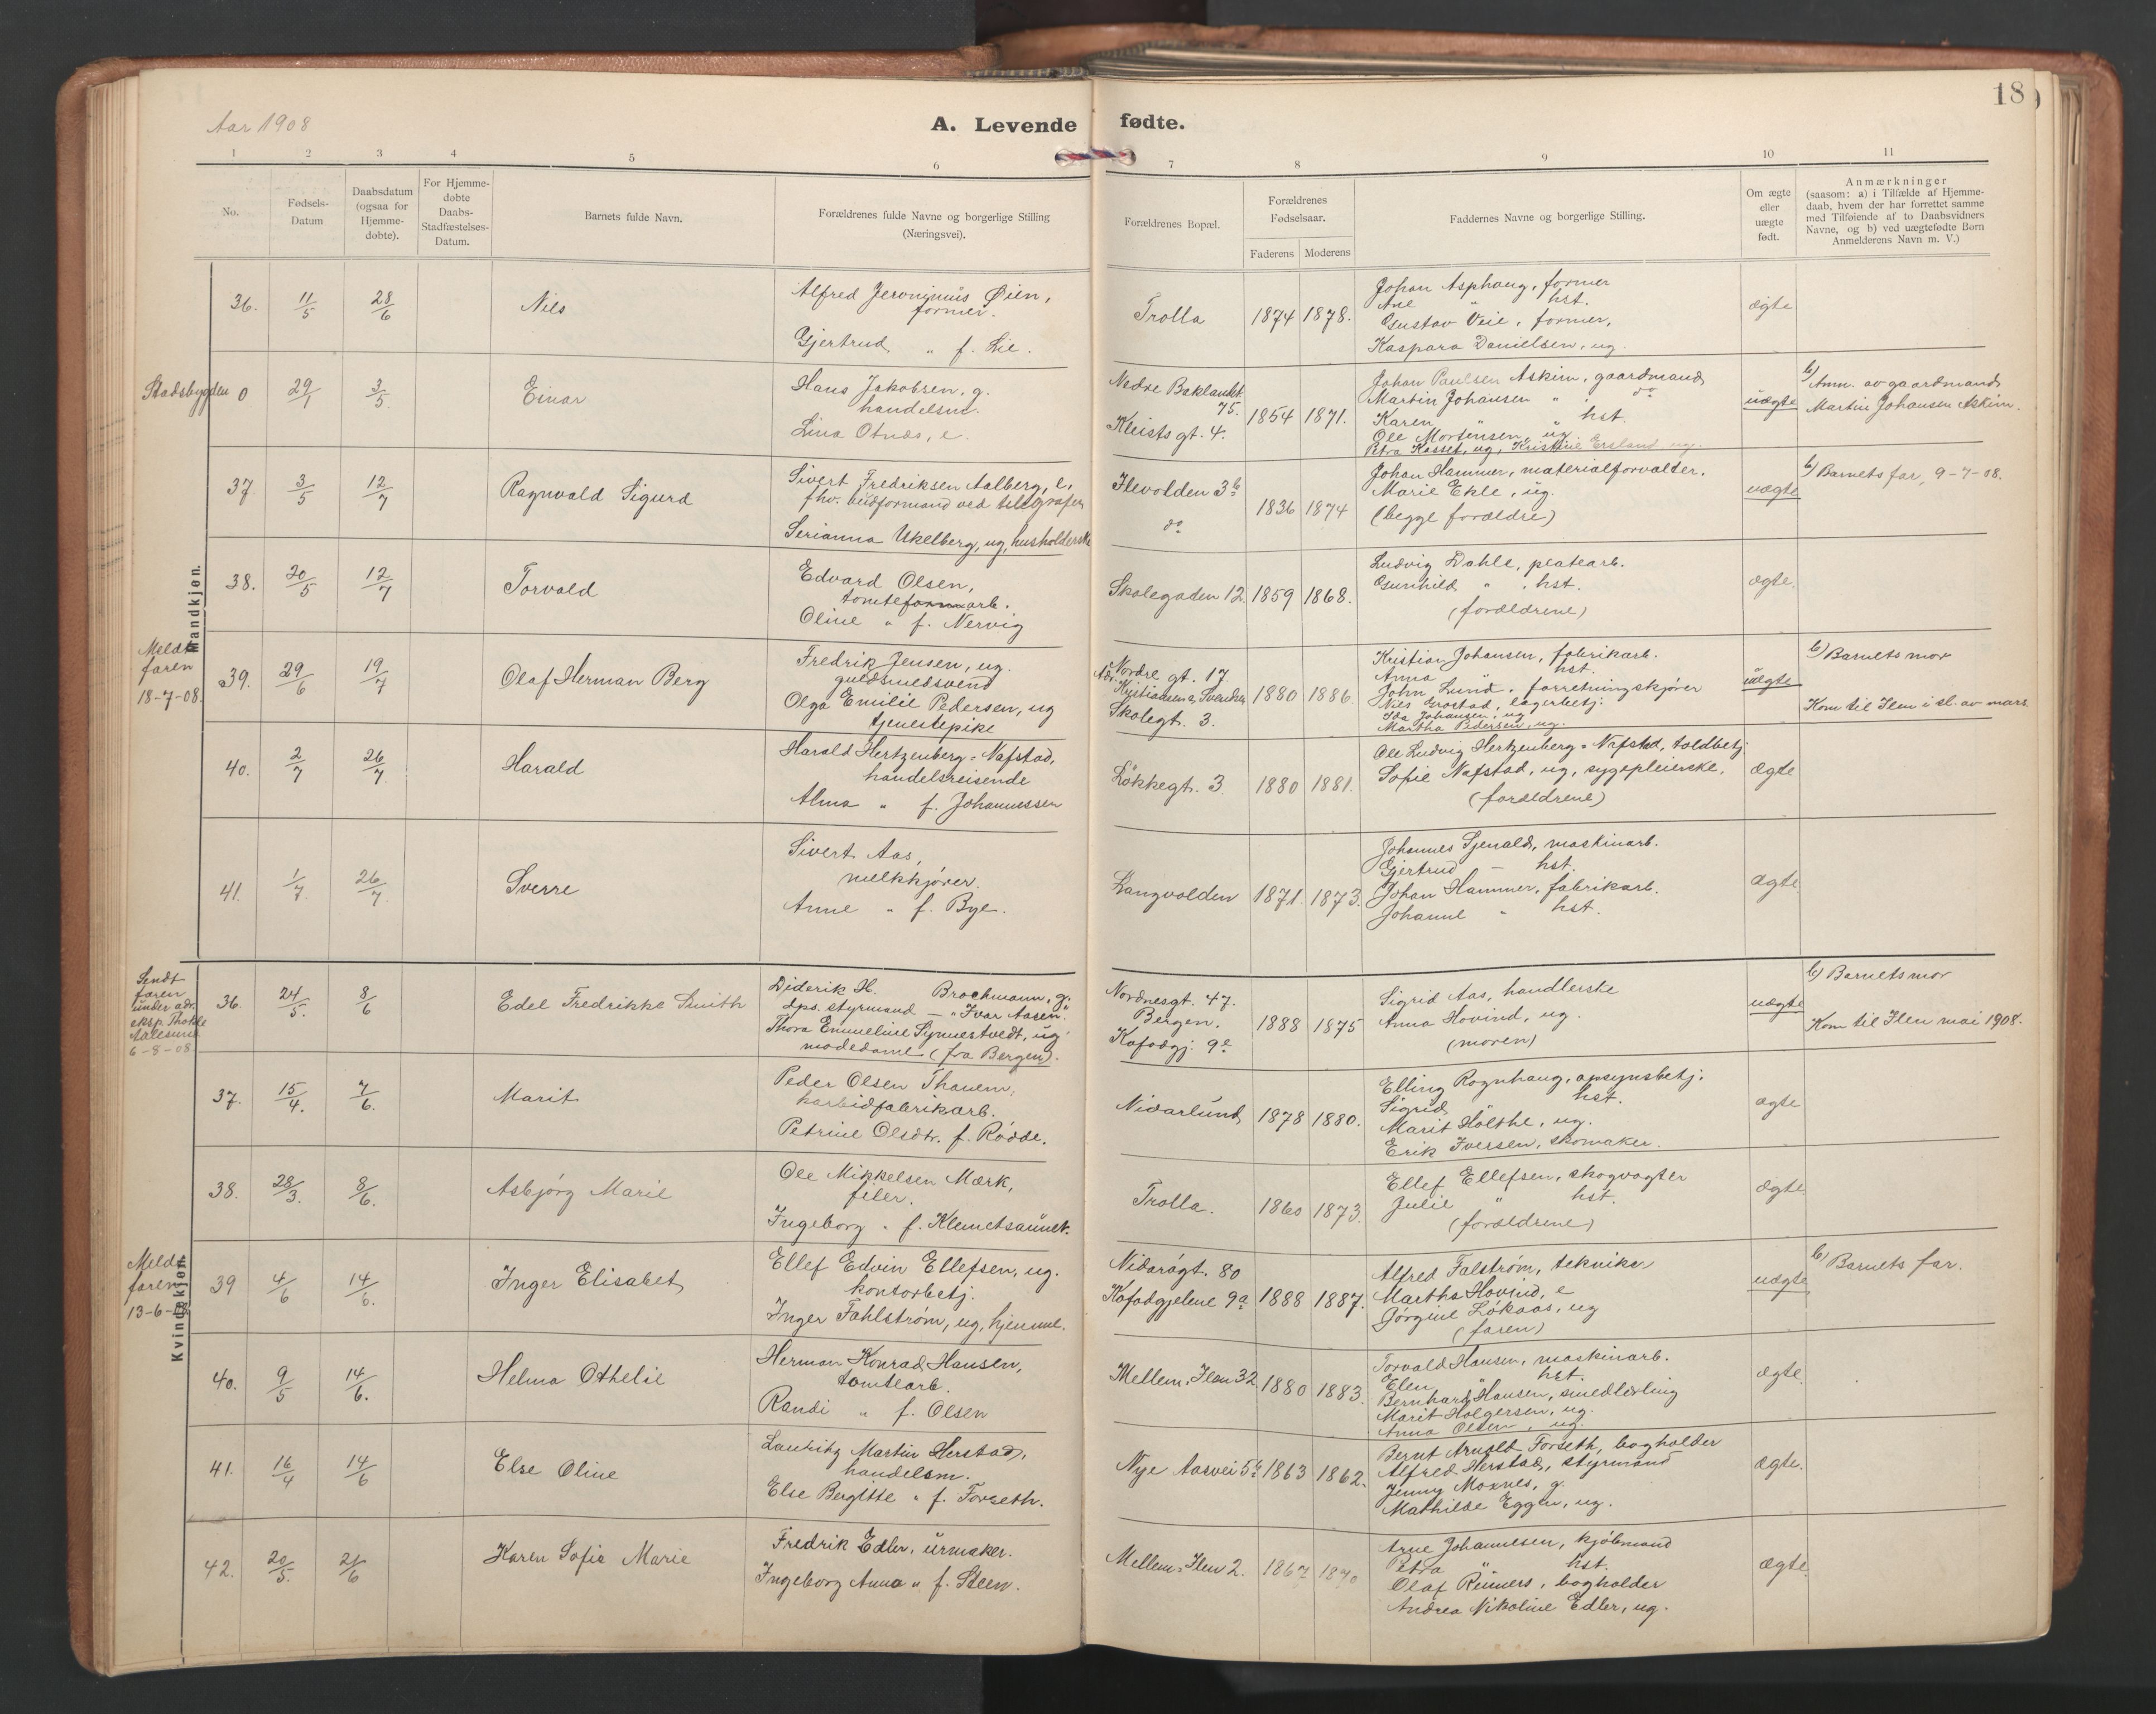 Aar 1908
A. Levende fødte.
18
1 2 3 4 5 6 7 8 9 10 11
No.
Fødsels-
Datum
Daabsdatum
(ogsaa for
Hjemme-
døbte).
For Hjemme-
døbte
Daabs-
Stadfæstelses-
Datum.
Barnets fulde Navn.
Forældrenes fulde Navne og borgerlige Stilling
(Næringsvei).
Forældrenes Bopæl.
Forældrenes
Fødselsaar.
Faderens Moderens
Faddernes Navne og borgerlige Stilling.
Om ægte
eller
uægte
født.
Anmærkninger
(saasom: a) i Tilfælde af Hjemme-
daab, hvem der har forrettet samme
med Tilføiende af to Daabsvidners
Navne, og b) ved uægtefødte Børn
Anmelderens Navn m. V.)
Mandkjøn.
36. 11/5 28/6 Nils
Alfred Jeronymus Øien,
former.
Gjertrud " f. Lie.
Trolla 1874 1878.
Johan Asphaug, former
Ane " hst.
Gustav Veie, former,
Kaspara Danielsen, ug.
ægte
Stadsbygden 0 29/1 3/5 Einar
Hans Jakobsen, g.
handelsm.
Lina Otnes, e.
Nedre Baklandet
75.
Kleists gt. 4.
1854 1871.
Johan Paulsen Askim, gaardmand
Martin Johansen " do
Karen " hst.
Ole Mortensen, ug
Petra Kasset, ug, Kristine Ersland ug.
uægte
b) Anm. av gaardmand
Martin Johansen Askim.
37 3/5 12/7 Ragnvald Sigurd
Sivert Fredriksen Aalberg, e,
fhv. budformand ved telegrafen
Serianna Ukelberg, ug, husholderske
Ilevolden 3b
do
1836 1874
Johan Hammer, materialforvalter.
Marie Ekle, ug.
(begge forældre)
uægte
b) Barnets far, 9-7-08.
38. 20/5 12/7 Torvald
Edvard Olsen,
tomtearb.
Oline " f. Nervig
Skolegaden 12. 1859 1868.
Ludvig Dahle, platearb.
Gunhild " hst.
(forældrene)
ægte.
Meldt
faren
18-7-08.
39. 29/6 19/7 Olaf Herman Berg
Fredrik Jensen, ug.
guldsmedsvend
Olga Emilie Pedersen, ug
tjenestepike
Nordre gt. 17.
Skolegt. 3.
1880 1886
Kristian Johansen, fabrikarb.
Anna " hst.
John Lund, forretningskjører
Nils Grostad, lagerbetj.
Ida Johansen, ug
Martha Pedersen, ug.
uægte
b) Barnets mor
Kom til Ilen i sl. av mars
40. 2/7 26/7 Harald
Harald Hertzenberg-Nafstad,
handelsreisende
Alma " f. Johannessen
Løkkegt. 3. 1880 1881.
Ole Ludvig Hertzenberg-Nafstad, toldbetj.
Sofie Nafstad, ug, sygepleierske,
(forældrene)
ægte
41. 1/7 26/7 Sverre
Sivert Aas,
melkkjører.
Anne " f. Bye.
Langvolden 1871. 1873.
Johannes Gjenald, maskinarb.
Gjertrud — hst.
Johan Hammer, fabrikarb.
Johanne " hst.
ægte
Kvindekjøn.
Sendt
faren
under adr.
eksp.
Aalesund
6-8-08.
36. 24/5. 8/6 Edel Fredrikke Smith
Diderik H. Brochmann, g.
dps. styrmand — "Ivar Aasen."
Thora Emmeline Synnestvedt, ug
modedame (fra Bergen).
Nordnesgt. 47.
Bergen.
1888 1875
Sigrid Aas, handlerske
Anna Hovind, ug.
(moren)
uægte
b) Barnets mor
Kom til Ilen mai 1908.
37. 15/4. 7/6. Marit
Peder Olsen Thauem,
karbidfabrikarb.
Petrine Olsdtr. f. Rødde.
Nidarlund 1878 1880.
Elling Rognhaug, opsynsbetj.
Sigrid hst.
Marit Holthe, ug.
Erik Iversen, skomaker.
ægte
38. 28/3. 8/6. Asbjørg Marie
Ole Mikkelsen Mærk,
filer.
Ingeborg " f. Klemetsaunet.
Trolla. 1860 1873.
Ellef Ellefsen, skogvogter
Julie " hst.
(forældrene)
ægte
Meldt
faren
13-6-08
39 4/6 14/6. Inger Elisabet
Ellef Edvin Ellefsen, ug.
kontorbetj.
Inger Fahlstrøm, ug, hjemme.
Nidarøgt. 80
Kafadgjelene 9a
1888 1887.
Alfred Falstrøm, tekniker
Martha Hovind, e
Jørgine Løkaas, ug
(faren)
uægte
b) Barnets far.
40. 9/5 14/6. Helma Othelie
Herman Konrad Hansen,
tomtearb.
Randi " f. Olsen
Mellem-Ilen 32 1880 1883.
Torvald Hansen, maskinarb.
Elen " hst.
Bernhard Hansen, smedlærling
Marit Holgersen, ug.
Anna Olsen, ug.
ægte.
41. 16/4 14/6 Else Oline
Lauritz Martin Herstad,
handelsm.
Else Bergitte " f. Forseth.
Nye Aasvei 5a 1863 1862.
Bernt Arnold Forseth, bogholder
Alfred Herstad, styrmand
Jenny Moxnes, g.
Mathilde Eggen, ug.
ægte.
42. 20/5. 21/6 Karen Sofie Marie
Fredrik Edler, urmaker.
Ingeborg Anna " f. Steen.
Mellem-Ilen 2. 1867 1870
Arne Johannesen, kjøbmand
Petra " hst.
Olaf Reimers, bogholder
Andrea Nikoline Edler, ug.
ægte.